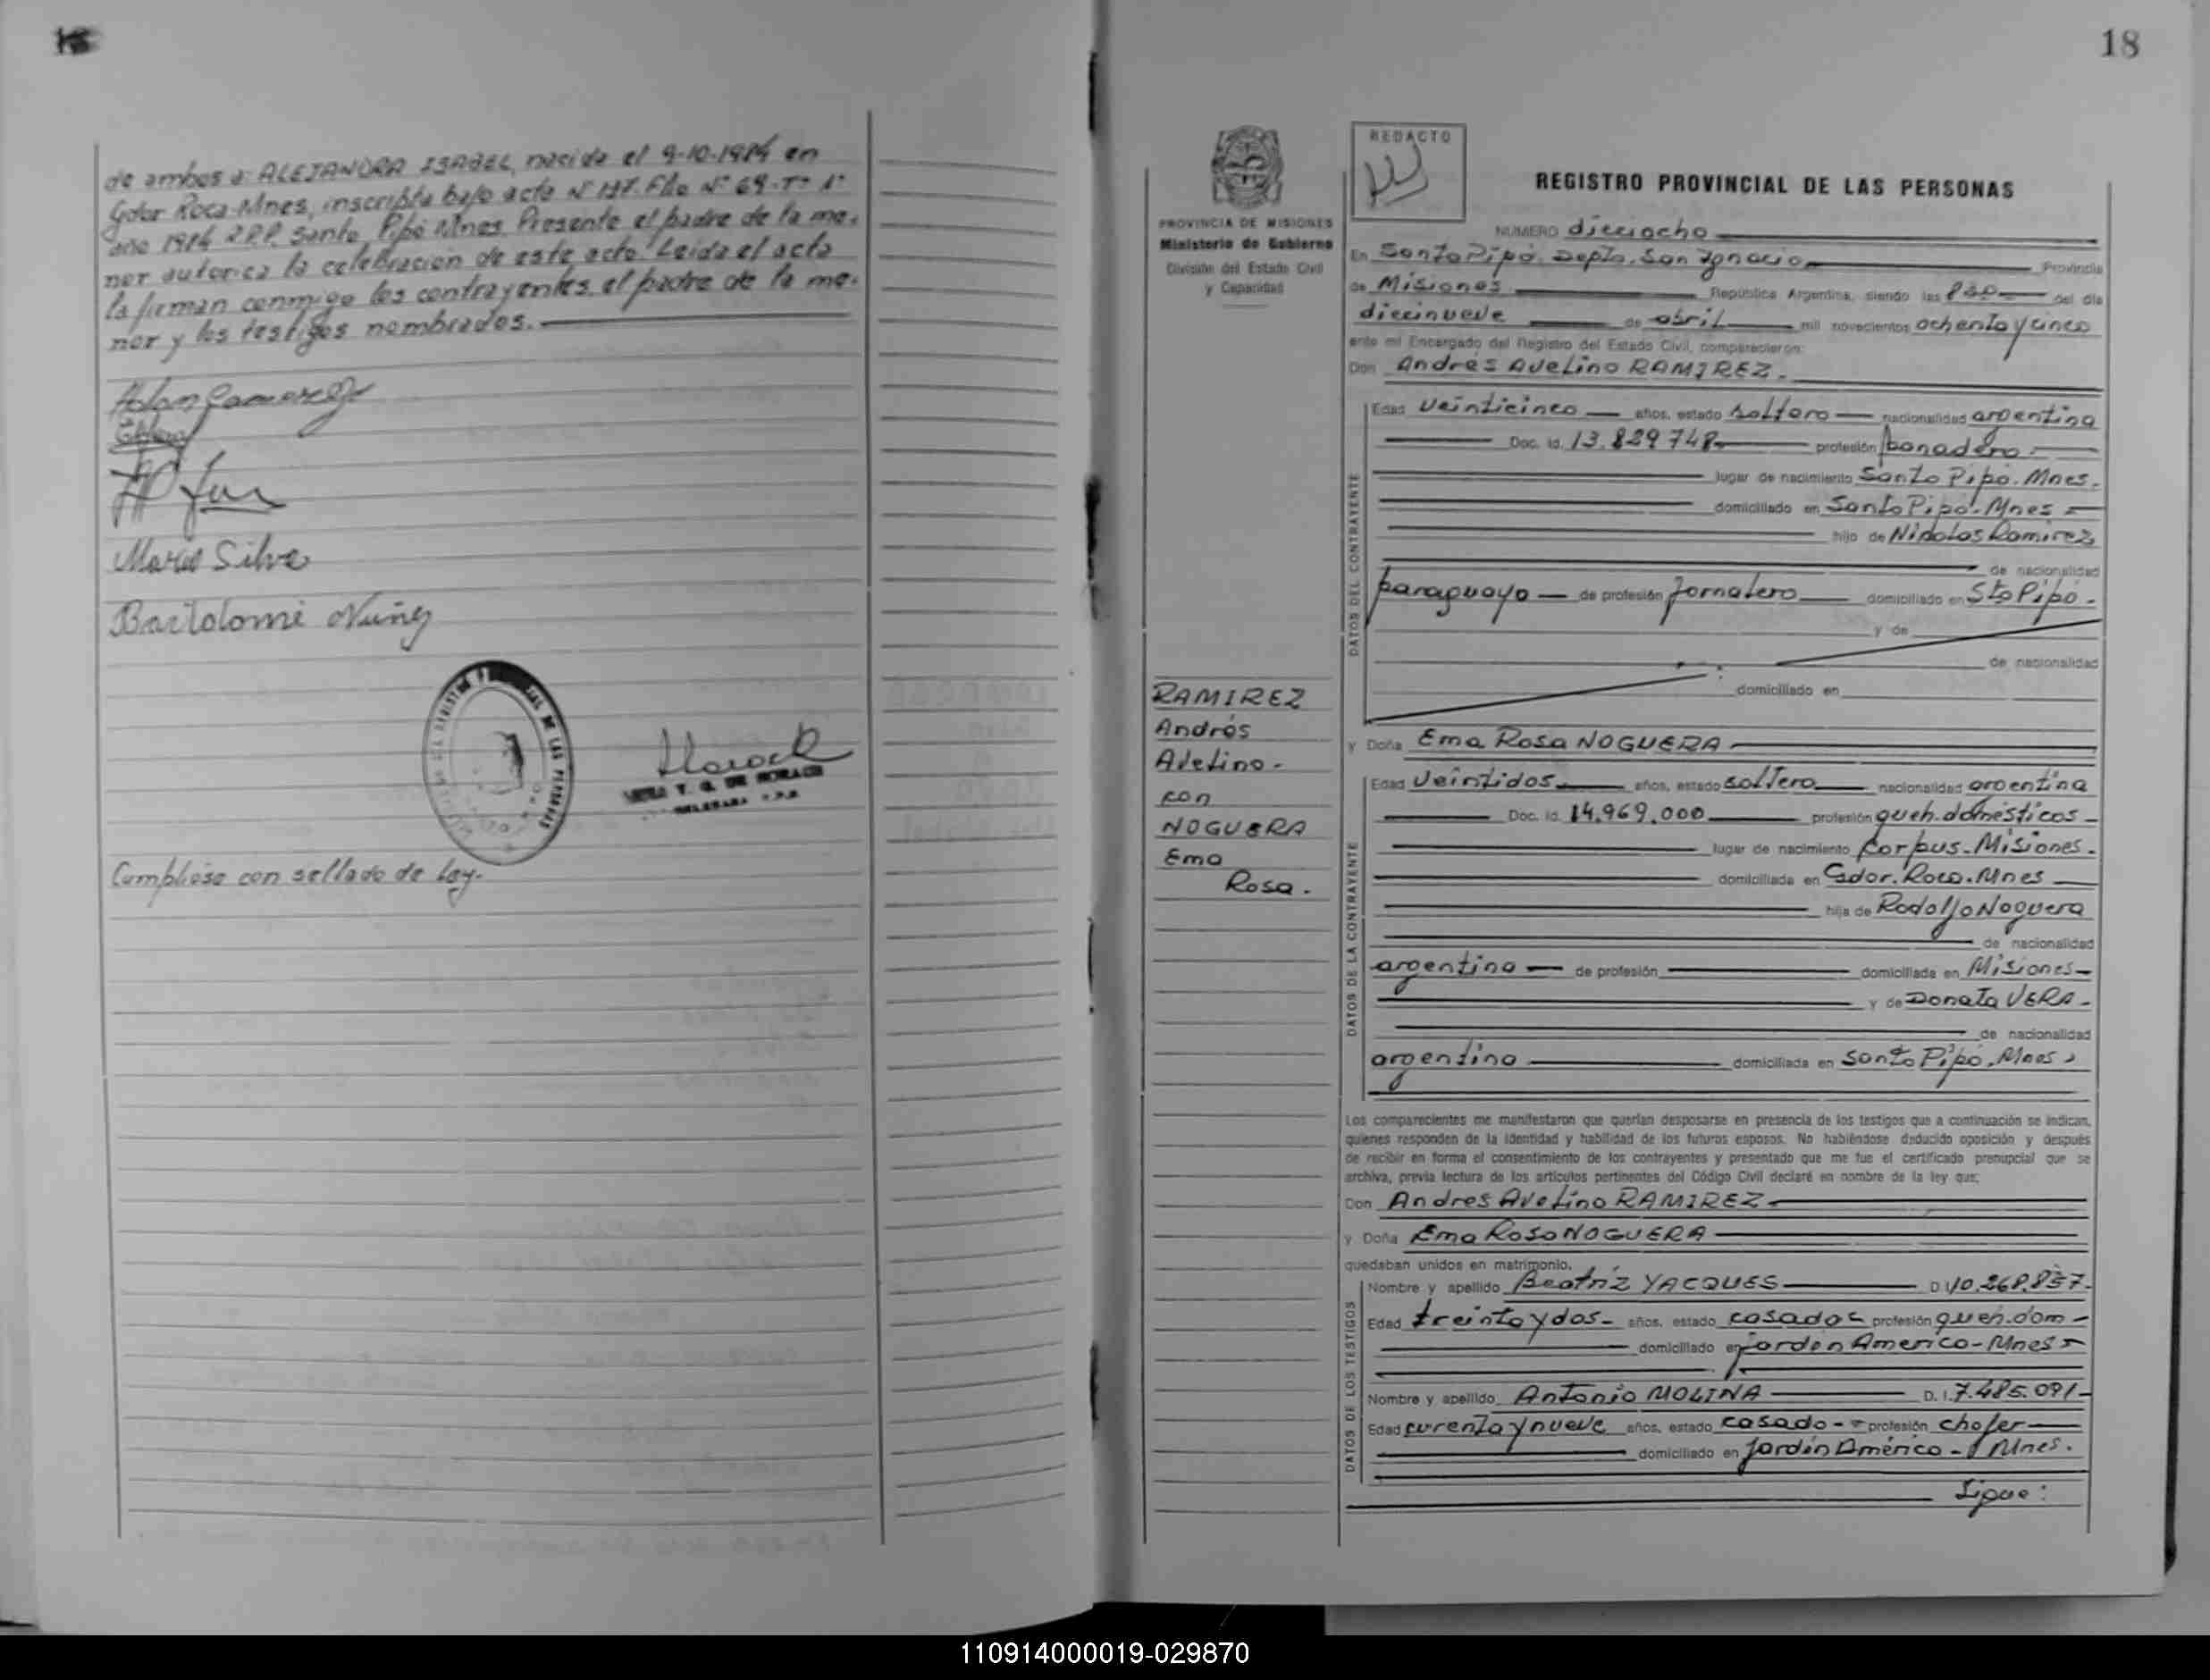 de ambos a: ALEJANDRA ISABEL, nacida el 9-10-1984 en
Gdor Roca-Mnes, inscripta bajo acta Nº 137. Flio Nº 69-Tº 1º
año 1984 R.P.P. Santo Pipó Mnes Presente el padre de la me-
nor autoriza la celebración de este acto. Leida el acta
la firman conmigo los contrayentes, el padre de la me-
nor y los testigos nombrados.
Mario Silva
Bartolomé Nuñez
DE LAS PERSONAS
Cumpliose con sellado de Ley.
18
PROVINCIA DE MISIONES
Ministerio de Gobierno
División del Estado Civil
y Capacidad
RAMIREZ
Andrés
Avelino-
con
NOGUERA
Ema
Rosa.
REDACTO
REGISTRO PROVINCIAL DE LAS PERSONAS
NUMERO dieciocho
En Santo Pipó. Depto. San Ignacio Provincia
de Misiones República Argentina, siendo las 830 del día
diecinueve de abril mil novecientos ochenta y cinco
ante mí Encargado del Registro del Estado Civil, comparecieron:
Don Andrés Avelino RAMIREZ.
DATOS DEL CONTRAYENTE
Edad Veinticinco años, estado soltero nacionalidad argentina
Doc. Id. 13.829748 profesión panadero
lugar de nacimiento Santo Pipó. Mnes.
domiciliado en Santo Pipó-Mnes
hijo de Nicolas Ramirez
de nacionalidad
paraguaya de profesión Jornalero domiciliado en Sto Pipó-
y de
de nacionalidad
domiciliado en
y Doña Ema Rosa NOGUERA
DATOS DE LA CONTRAYENTE
Edad Veintidos años, estado soltera nacionalidad argentina
Doc. Id. 14.969.000 profesión queh. domésticos
lugar de nacimiento Corpus-Misiones.
domiciliada en Gdor. Roca. Mnes
hija de Rodolfo Noguera
de nacionalidad
argentina de profesión domiciliada en Misiones
y de Donata VERA-
de nacionalidad
argentina domiciliada en Santo Pipó. Mnes
Los comparecientes me manifestaron que querían desposarse en presencia de los testigos que a continuación se indican,
quienes responden de la identidad y habilidad de los futuros esposos. No habiéndose deducido oposición y después
de recibir en forma el consentimiento de los contrayentes y presentado que me fue el certificado prenupcial que se
archiva, previa lectura de los artículos pertinentes del Código Civil declaré en nombre de la ley que:
Don Andres Avelino RAMIREZ
y Doña Ema Rosa NOGUERA
quedaban unidos en matrimonio.
DATOS DE LOS TESTIGOS
Nombre y apellido Beatriz YACQUES D.I. 10.268.857.
Edad treinta y dos- años, estado casada profesión queh. dom-
domiciliado en Jardín America-Mnes
Nombre y apellido Antonio MOLINA D. I. 7.485.091-
Edad curenta y nueve años, estado casado- profesión chofer
domiciliado en Jardín América- Mnes.
Sigue:
110914000019-029870